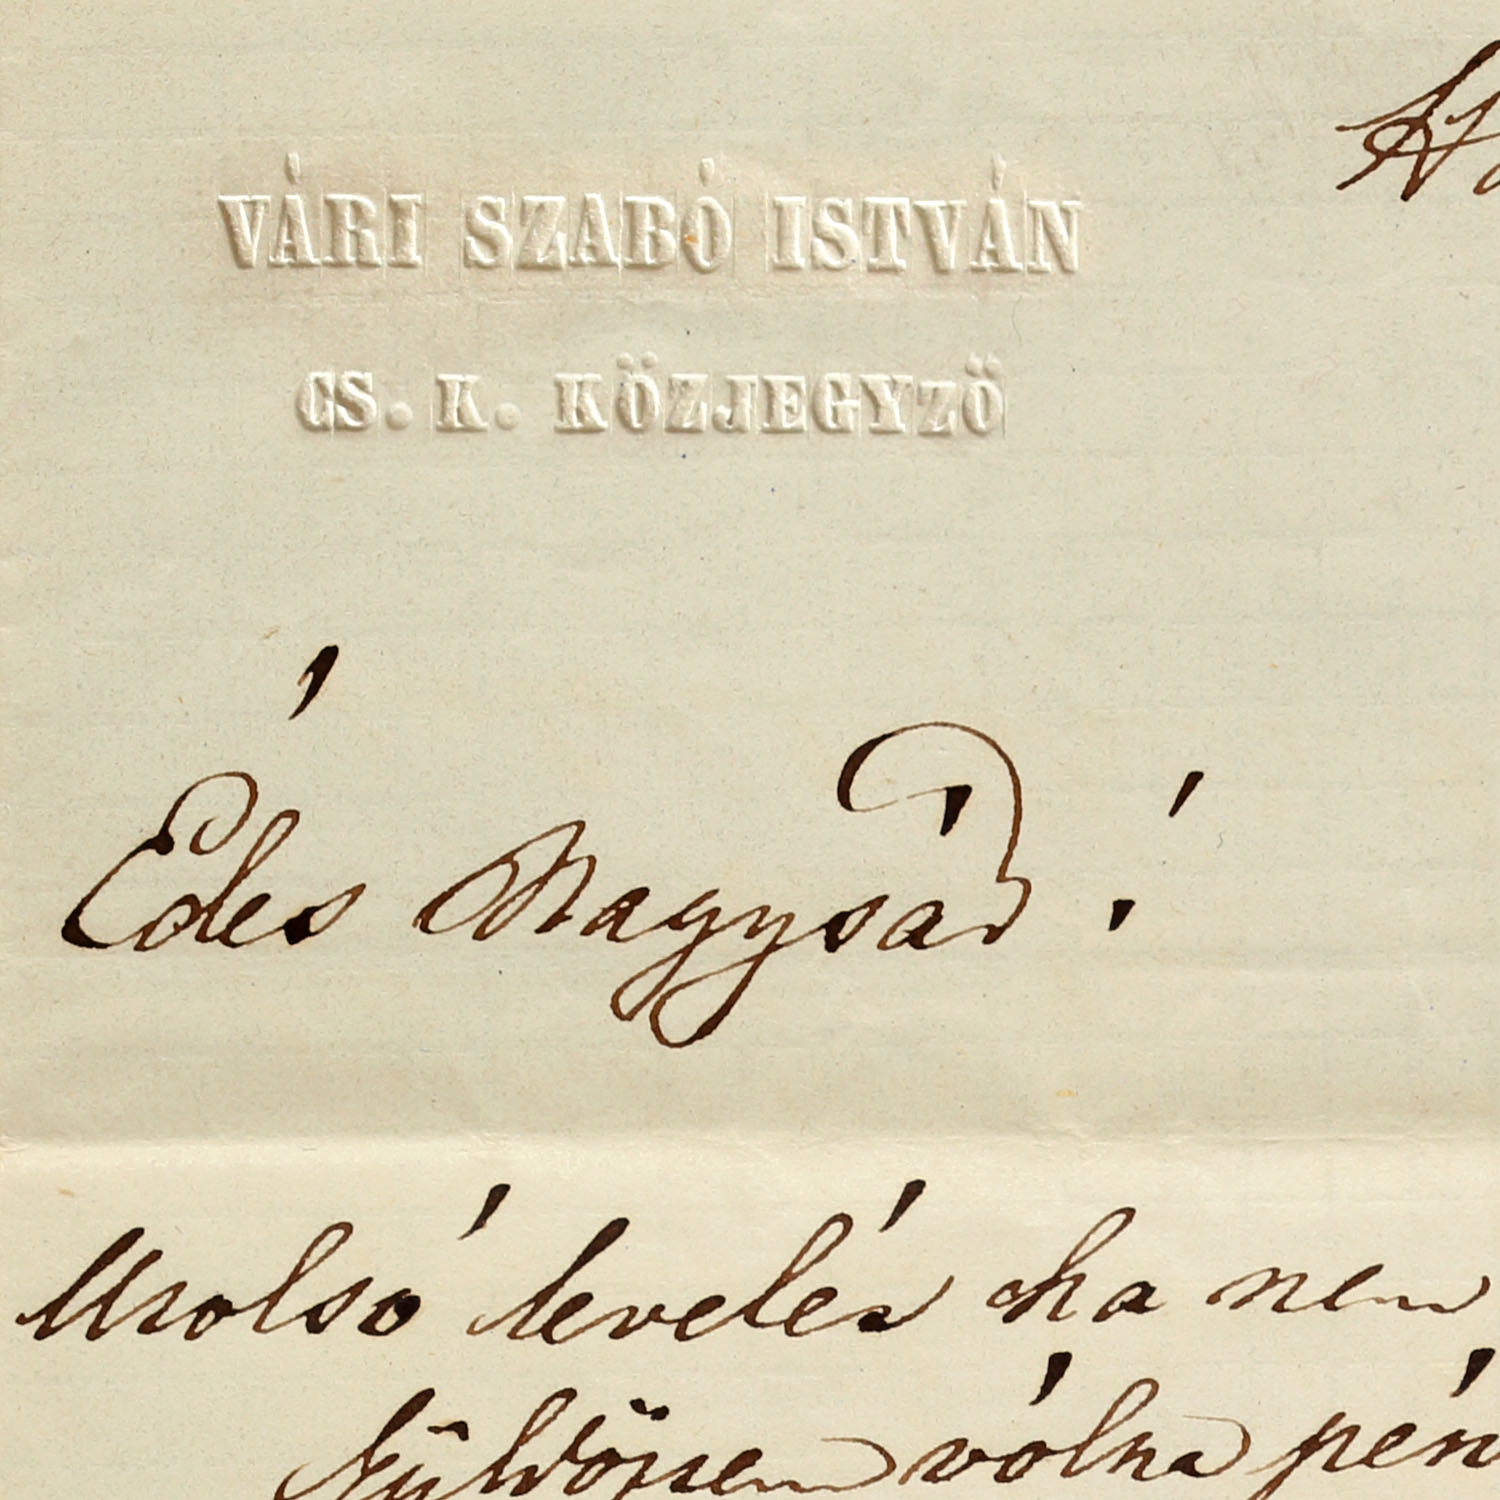 VÁRI SZABÓ ISTVÁN
CS. K. KÖZJEGYZÖ
Édes Nagysád!
Utolsó levelét ha nem
küldöttem vólna pén